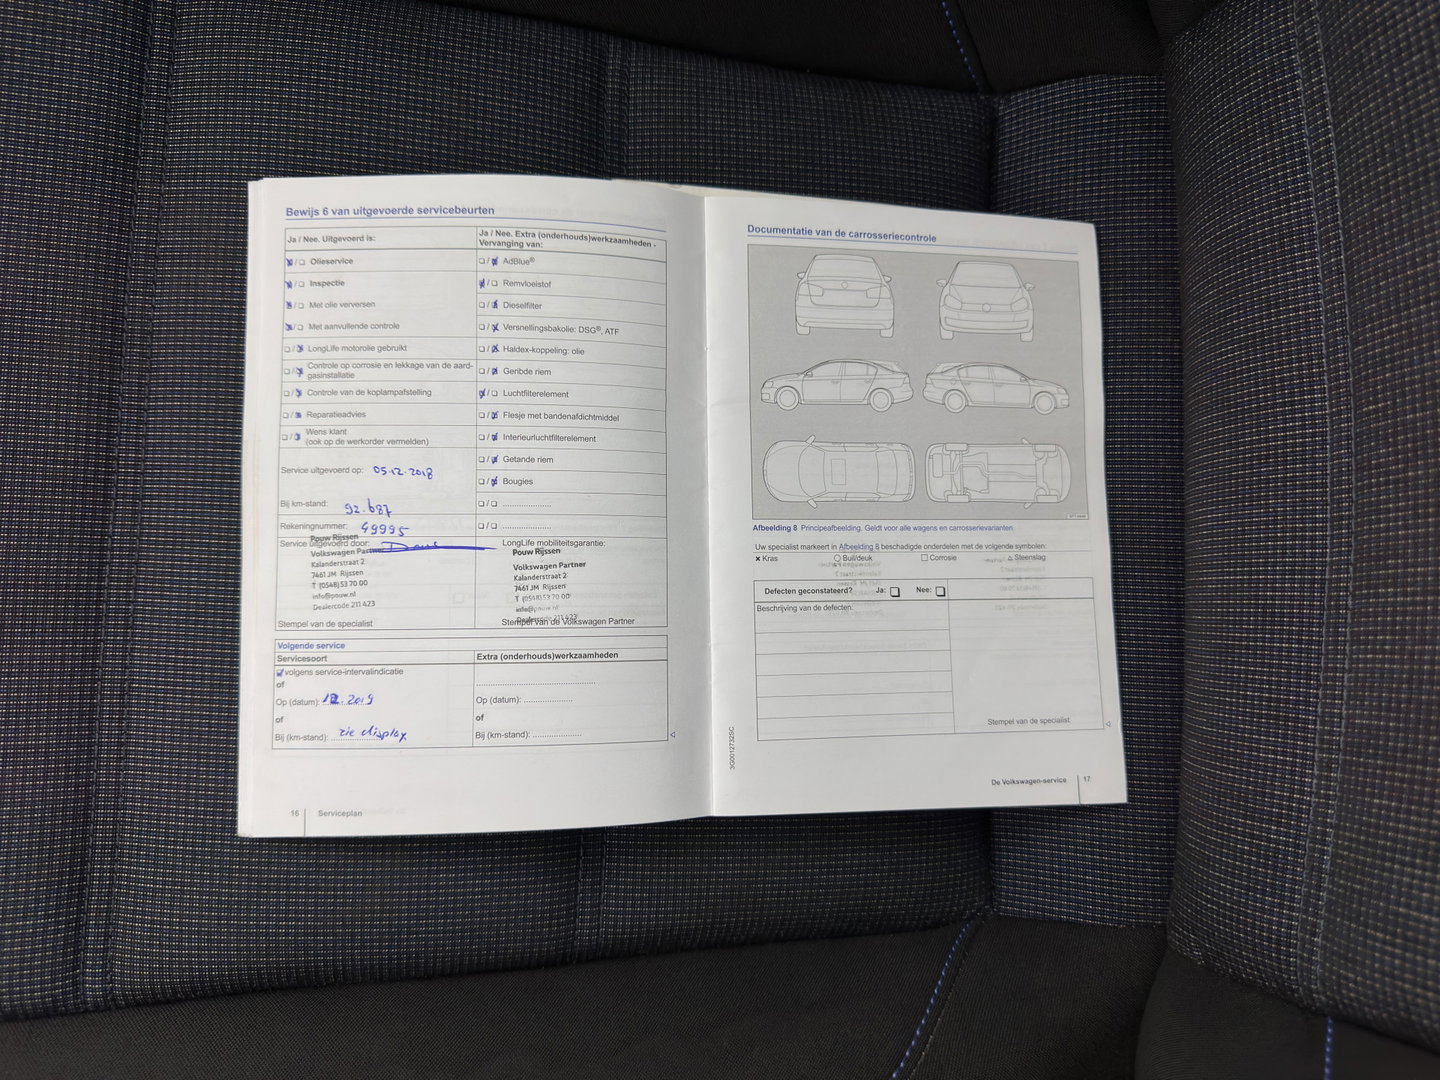 Bewijs 6 van uitgevoerde servicebeurten
Ja / Nee. Uitgevoerd is:
❑ / ❑ Olieservice
❑ / ❑ Inspectie
❑ / ❑ Met olie verversen
❑ / ❑ Met aanvullende controle
❑ / ❑ LongLife motorolie gebruikt
❑ / ❑ Controle op corrosie en lekkage van de aard-
gasinstallatie
❑ / ❑ Controle van de koplampafstelling
❑ / ❑ Reparatieadvies
❑ / ❑ Wens klant
(ook op de werkorder vermelden)
Service uitgevoerd op: 05.12.2018
Bij km-stand: 92.687
Rekeningnummer: 49995
Service uitgevoerd door:
Pouw Rijssen
Volkswagen Partner
Kalanderstraat 2
7461 JM Rijssen
T (0548) 53 70 00
info@pouw.nl
Dealercode 211 423
Stempel van de specialist
Ja / Nee. Extra (onderhouds)werkzaamheden -
Vervanging van:
❑ / ❑ AdBlue®
❑ / ❑ Remvloeistof
❑ / ❑ Dieselfilter
❑ / ❑ Versnellingsbakolie: DSG®, ATF
❑ / ❑ Haldex-koppeling: olie
❑ / ❑ Geribde riem
❑ / ❑ Luchtfilterelement
❑ / ❑ Flesje met bandenafdichtmiddel
❑ / ❑ Interieurluchtfilterelement
❑ / ❑ Getande riem
❑ / ❑ Bougies
❑ / ❑ .....................
❑ / ❑ .....................
LongLife mobiliteitsgarantie:
Pouw Rijssen
Volkswagen Partner
Kalanderstraat 2
7461 JM Rijssen
T (0548) 53 70 00
info@pouw.nl
Dealercode 211 423
Stempel van de Volkswagen Partner
Volgende service
Servicesoort
❑ volgens service-intervalindicatie
of
Op (datum): 12.2019
of
Bij (km-stand): zie display
Extra (onderhouds)werkzaamheden
Op (datum): .....................
of
Bij (km-stand): .....................
16 Serviceplan
Documentatie van de carrosseriecontrole
Afbeelding 8 Principeafbeelding. Geldt voor alle wagens en carrosserievarianten.
Uw specialist markeert in Afbeelding 8 beschadigde onderdelen met de volgende symbolen:
× Kras ○ Buil/deuk □ Corrosie △ Steenslag
Defecten geconstateerd? Ja: ❑ Nee: ❑
Beschrijving van de defecten:
Stempel van de specialist
3G0012732SC
De Volkswagen-service 17